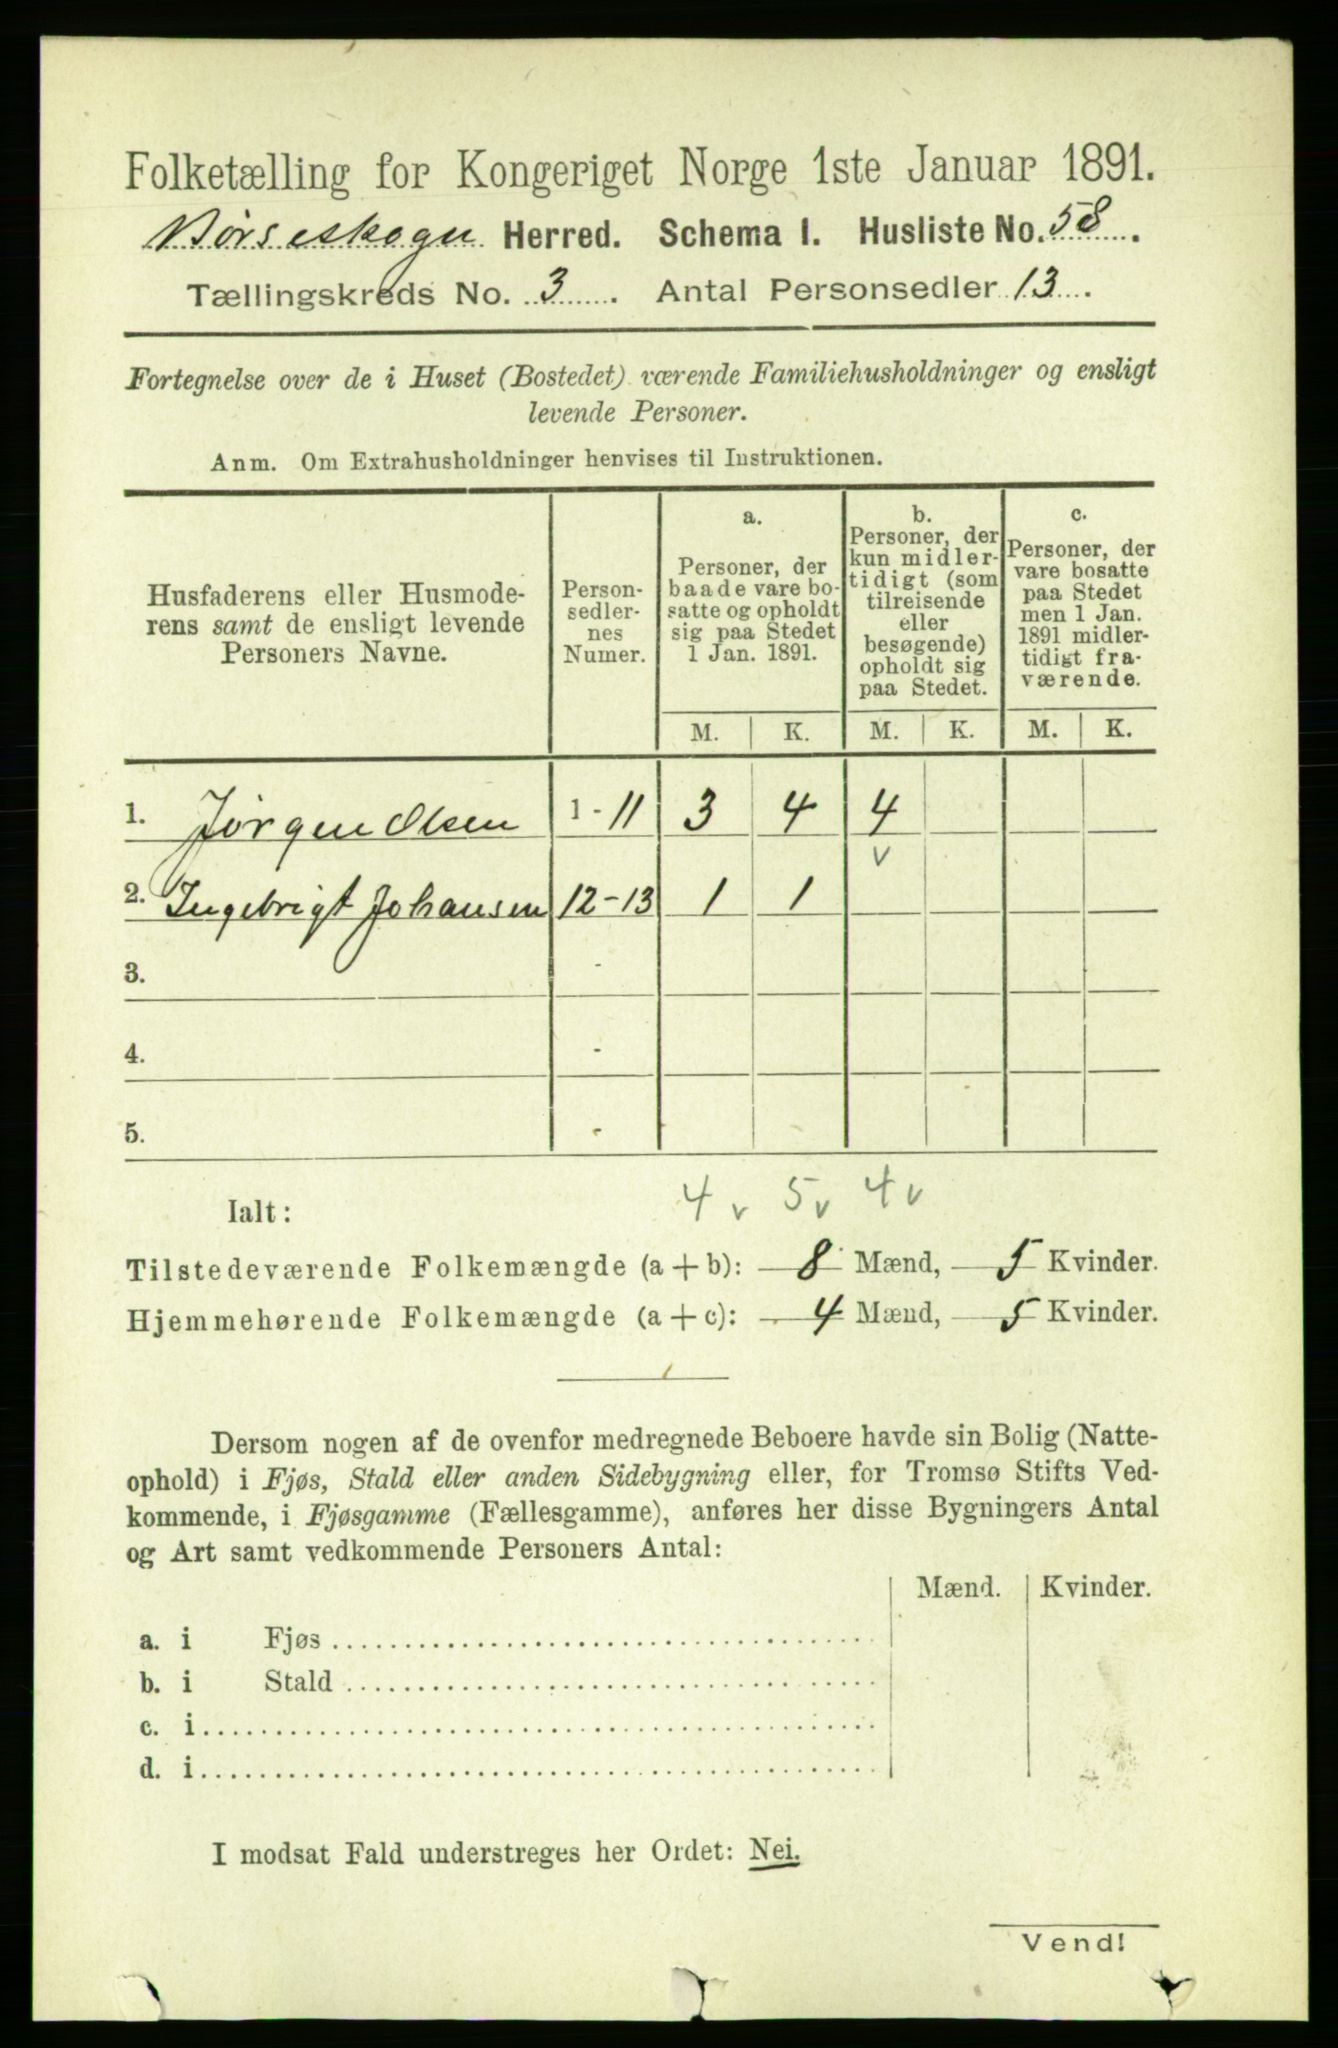 Folketælling for Kongeriget Norge 1ste Januar 1891.
Børseskogn Herred. Schema I. Husliste No. 58.
Tællingskreds No. 3. Antal Personsedler 13.
Fortegnelse over de i Huset (Bostedet) værende Familiehusholdninger og ensligt
levende Personer.
Anm. Om Extrahusholdninger henvises til Instruktionen.
Husfaderens eller Husmode-
rens samt de ensligt levende
Personers Navne.
Person-
sedler-
nes
Numer.
a.
Personer, der
baade vare bo-
satte og opholdt
sig paa Stedet
1 Jan. 1891.
b.
Personer, der
kun midler-
tidigt (som
tilreisende
eller
besøgende)
opholdt sig
paa Stedet.
c.
Personer, der
vare bosatte
paa Stedet
men 1 Jan.
1891 midler-
tidigt fra-
værende.
M. K. M. K. M. K.
1. Jørgen Olsen 1 - 11 3 4 4
v
2. Ingebrigt Johansen 12-13 1 1
3. -
4. -
5. -
Ialt: 4 v 5 v 4 v
Tilstedeværende Folkemængde (a + b): 8 Mænd, 5 Kvinder.
Hjemmehørende Folkemængde (a + c): 4 Mænd, 5 Kvinder.
Dersom nogen af de ovenfor medregnede Beboere havde sin Bolig (Natte-
ophold) i Fjøs, Stald eller anden Sidebygning eller, for Tromsø Stifts Ved-
kommende, i Fjøsgamme (Fællesgamme), anføres her disse Bygningers Antal
og Art samt vedkommende Personers Antal:
Mænd. Kvinder.
a. i Fjøs
b. i Stald
c. i
d. i
I modsat Fald understreges her Ordet: Nei.
Vend!